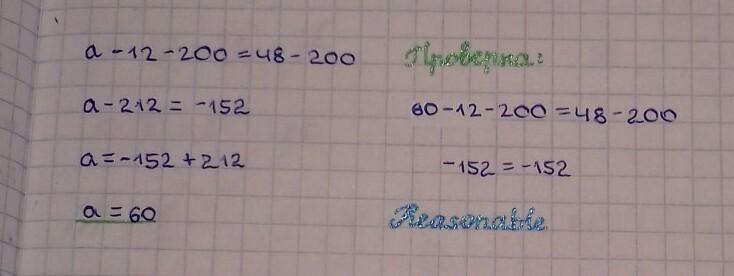 a - 12 - 200 = 48 - 200
a - 212 = -152
a = -152 + 212
a = 60
Проверка:
60 - 12 - 200 = 48 - 200
-152 = -152
Reasonable